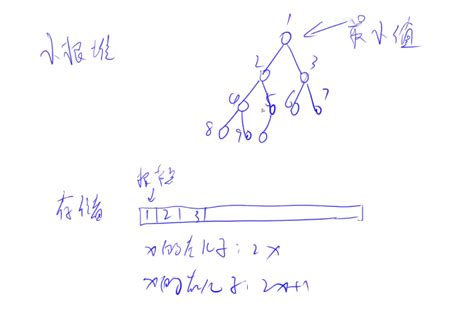 小根堆
1
最小值
2 3
4 5 6 7
8 9
根节点
存储
1 2 3
x的左儿子：2x
x的右儿子：2x+1